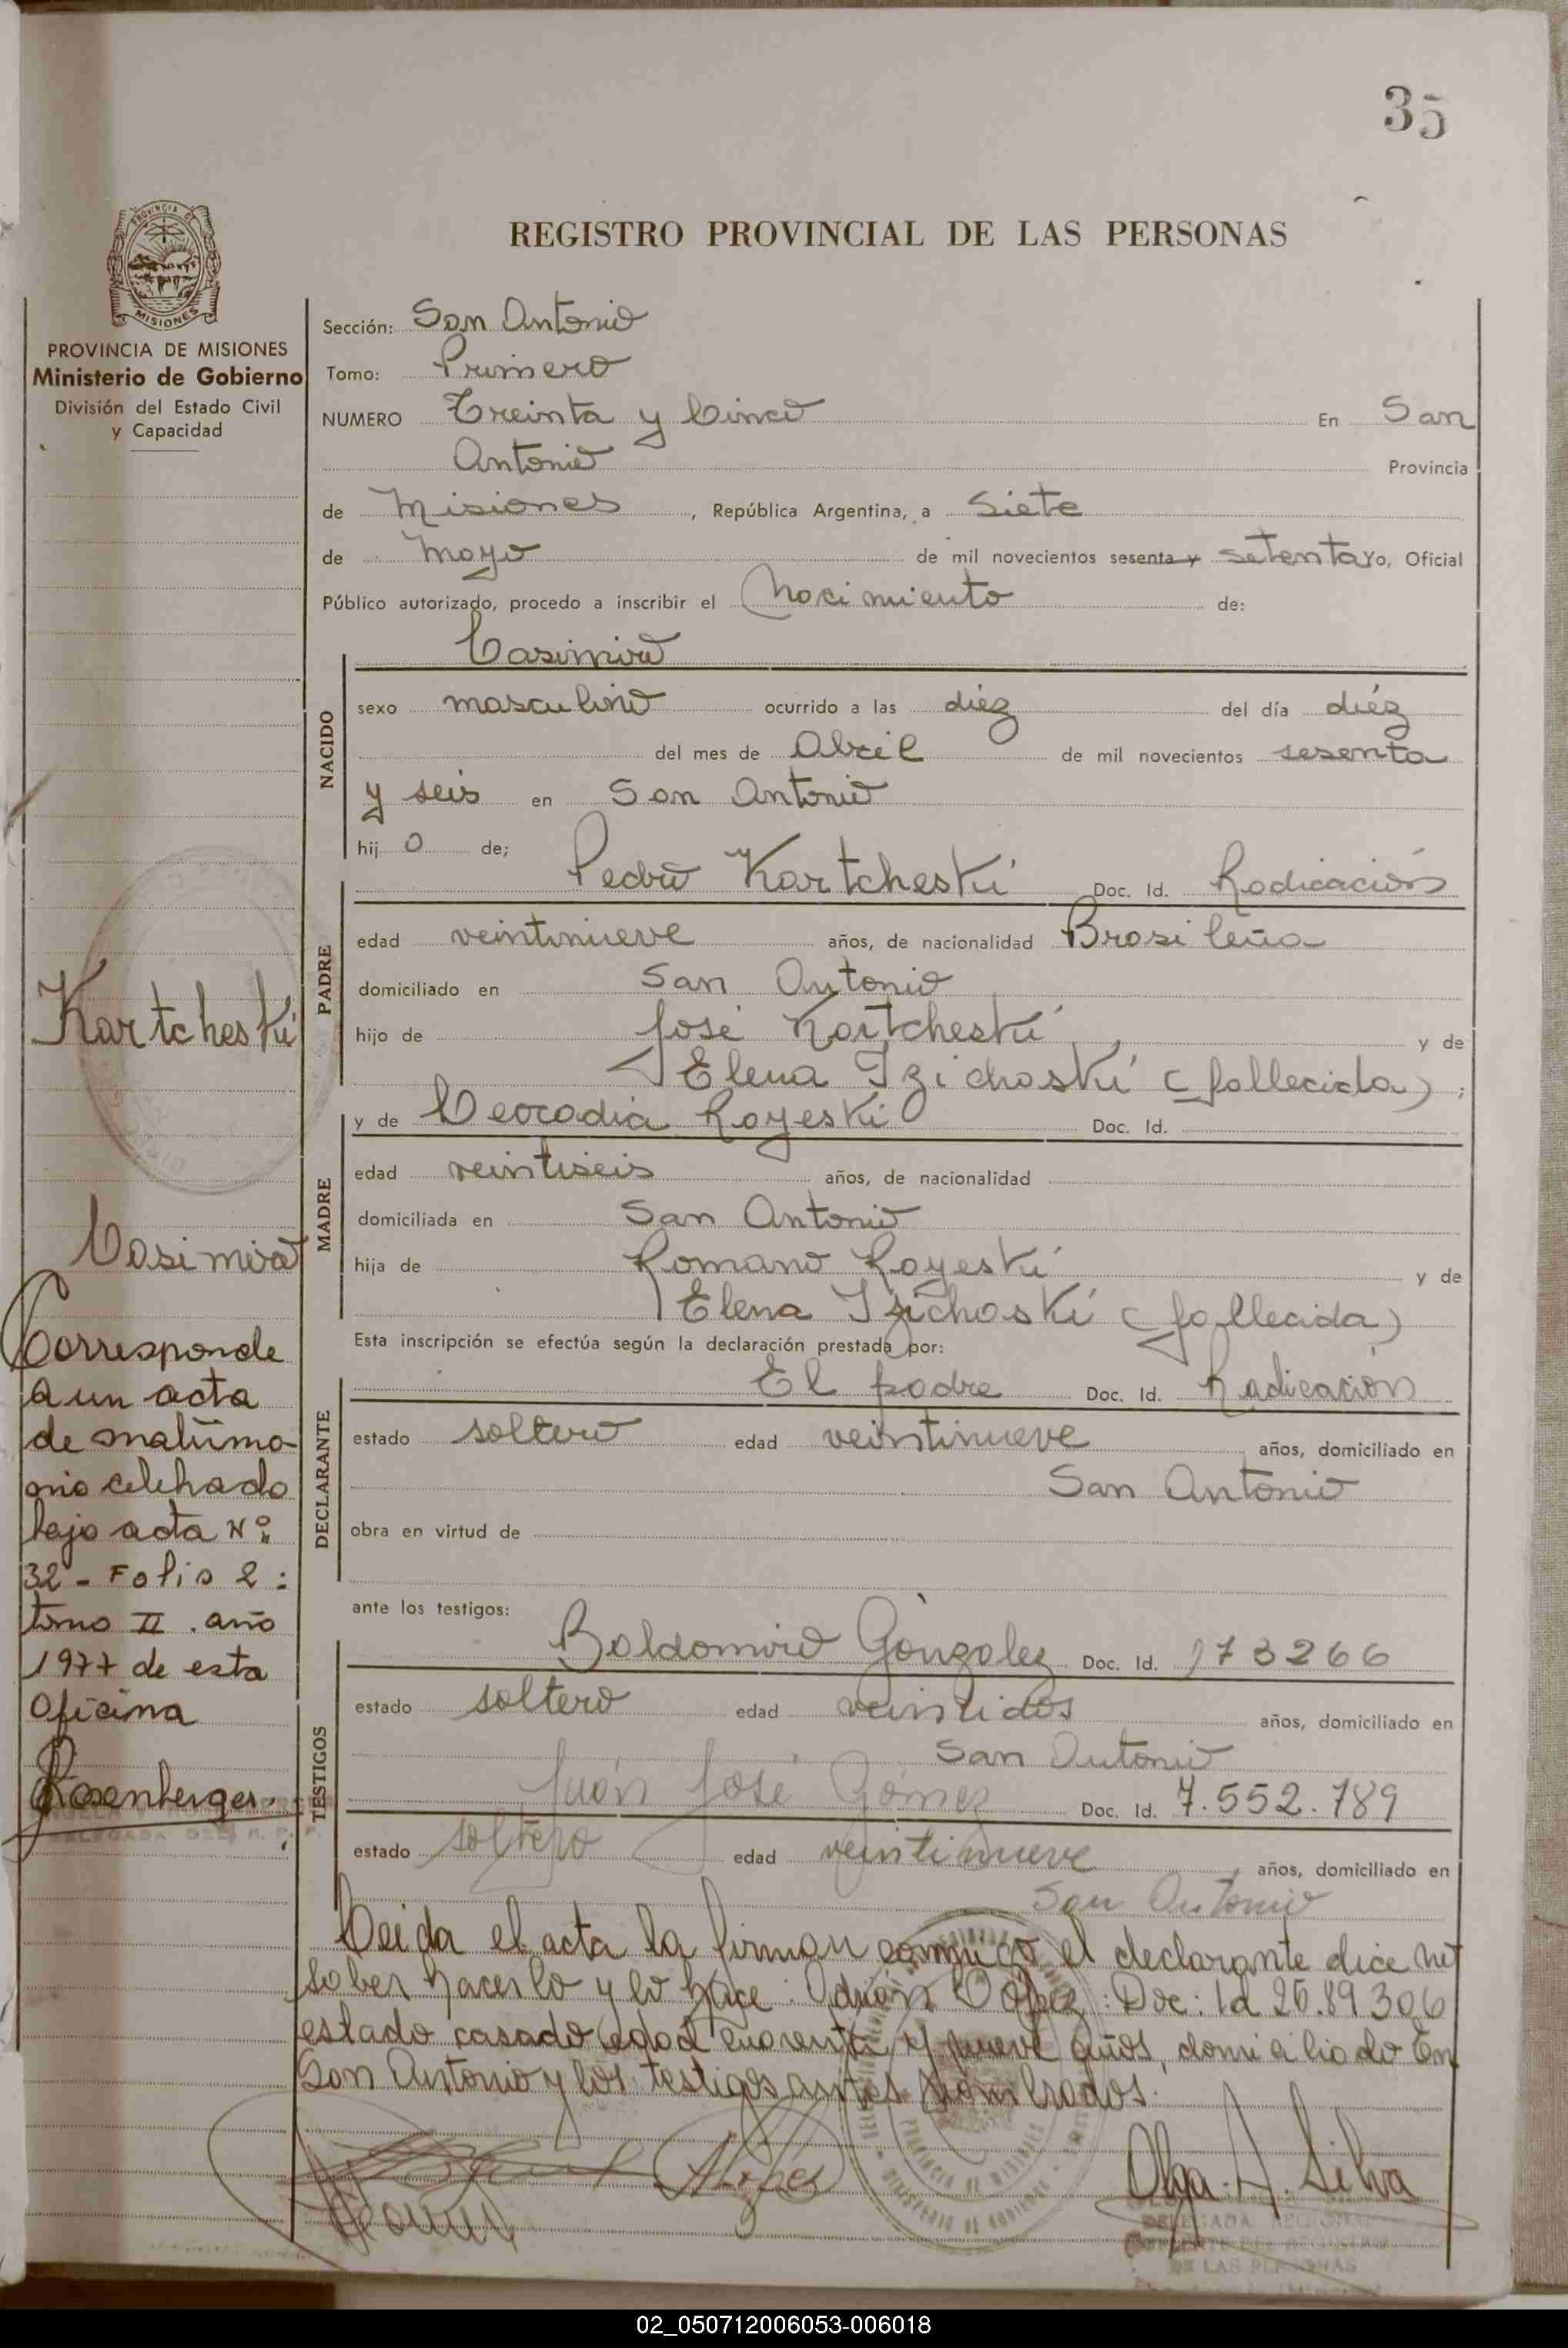 35
REGISTRO PROVINCIAL DE LAS PERSONAS
PROVINCIA DE
MISIONES
PROVINCIA DE MISIONES
Ministerio de Gobierno
División del Estado Civil
y Capacidad
Sección: San Antonio
Tomo: Primero
NUMERO Treinta y Cinco En San
Antonio Provincia
de Misiones, República Argentina, a Siete
de Mayo de mil novecientos sesenta y setenta Yo, Oficial
Público autorizado, procedo a inscribir el Nacimiento de:
Casimiro
NACIDO
sexo masculino ocurrido a las diéz del día diéz
del mes de Abril de mil novecientos sesenta
y seis en San Antonio
hijo de;
Pedro Kartcheski Doc. Id. Radicación
PADRE
edad veintinueve años, de nacionalidad Brasileña
domiciliado en San Antonio
hijo de José Kartcheski y de
Elena Izichoski (fallecida);
y de Leocadia Royeski Doc. Id.
MADRE
edad veintiseis años, de nacionalidad
domiciliada en San Antonio
hija de Romano Royeski y de
Elena Izichoski (fallecida)
Esta inscripción se efectúa según la declaración prestada por:
El padre Doc. Id. Radicación
DECLARANTE
estado soltero edad veintinueve años, domiciliado en
San Antonio
obra en virtud de
ante los testigos:
Baldomiro Gonzalez Doc. Id. 173266
TESTIGOS
estado soltero edad veintidos años, domiciliado en
San Antonio
Juán José Gómez Doc. Id. 7.552.789
estado soltero edad veintinueve años, domiciliado en
San Antonio
Leida el acta la firman conmigo el declarante dice no
saber hacerlo y lo hace: Adrián López: Doc: Id 25.89.306
estado casado edad cuarenta y nueve años, domiciliado En
San Antonio y los testigos antes nombrados.
Olga A. Silva
DELEGADA REGIONAL
DE LAS PERSONAS
Kartcheski
Casimiro
Corresponde
a un acta
de matrimo-
nio celebrado
bajo acta Nº
32 - Folio 2:
tomo II. año
1977 de esta
Oficina
Rosenberger.
DELEGADA DEL R. P. P.
02_050712006053-006018